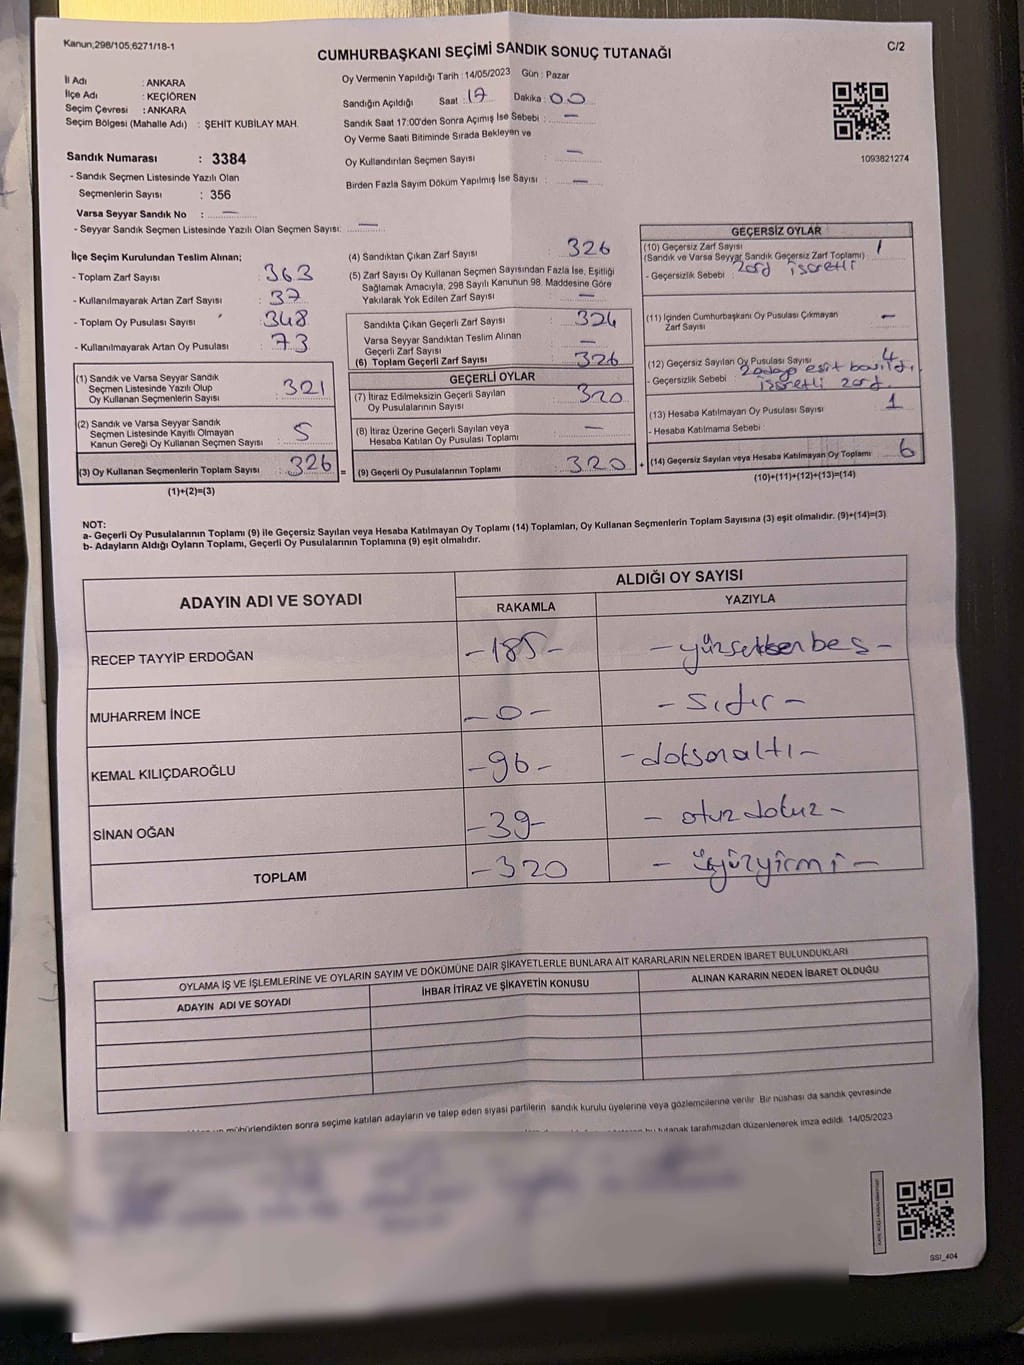 Kanun;298/105,6271/18-1
C/2
CUMHURBAŞKANI SEÇİMİ SANDIK SONUÇ TUTANAĞI
İl Adı : ANKARA
İlçe Adı : KEÇİÖREN
Seçim Çevresi : ANKARA
Seçim Bölgesi (Mahalle Adı) : ŞEHİT KUBİLAY MAH.
Sandık Numarası : 3384
- Sandık Seçmen Listesinde Yazılı Olan
Seçmenlerin Sayısı : 356
Varsa Seyyar Sandık No : —
- Seyyar Sandık Seçmen Listesinde Yazılı Olan Seçmen Sayısı: —
Oy Vermenin Yapıldığı Tarih : 14/05/2023 Gün : Pazar
Sandığın Açıldığı Saat : 17 Dakika : 00
Sandık Saat 17:00'den Sonra Açımış İse Sebebi : —
Oy Verme Saati Bitiminde Sırada Bekleyen ve
Oy Kullandırılan Seçmen Sayısı : —
Birden Fazla Sayım Döküm Yapılmış İse Sayısı : —
1093821274
İlçe Seçim Kurulundan Teslim Alınan;
- Toplam Zarf Sayısı : 363
- Kullanılmayarak Artan Zarf Sayısı : 37
- Toplam Oy Pusulası Sayısı : 348
- Kullanılmayarak Artan Oy Pusulası : 73
(1) Sandık ve Varsa Seyyar Sandık
Seçmen Listesinde Yazılı Olup
Oy Kullanan Seçmenlerin Sayısı : 321
(2) Sandık ve Varsa Seyyar Sandık
Seçmen Listesinde Kayıtlı Olmayan
Kanun Gereği Oy Kullanan Seçmen Sayısı : 5
(3) Oy Kullanan Seçmenlerin Toplam Sayısı : 326 =
(1)+(2)=(3)
(4) Sandıktan Çıkan Zarf Sayısı : 326
(5) Zarf Sayısı Oy Kullanan Seçmen Sayısından Fazla İse, Eşitliği
Sağlamak Amacıyla, 298 Sayılı Kanunun 98. Maddesine Göre
Yakılarak Yok Edilen Zarf Sayısı : —
Sandıkta Çıkan Geçerli Zarf Sayısı : 324
Varsa Seyyar Sandıktan Teslim Alınan
Geçerli Zarf Sayısı : —
(6) Toplam Geçerli Zarf Sayısı : 326
GEÇERLİ OYLAR
(7) İtiraz Edilmeksizin Geçerli Sayılan
Oy Pusulalarının Sayısı : 320
(8) İtiraz Üzerine Geçerli Sayılan veya
Hesaba Katılan Oy Pusulası Toplamı : —
(9) Geçerli Oy Pusulalarının Toplamı : 320 +
GEÇERSİZ OYLAR
(10) Geçersiz Zarf Sayısı
(Sandık ve Varsa Seyyar Sandık Geçersiz Zarf Toplamı) : 1
- Geçersizlik Sebebi : zarf işaretli
(11) İçinden Cumhurbaşkanı Oy Pusulası Çıkmayan
Zarf Sayısı : —
(12) Geçersiz Sayılan Oy Pusulası Sayısı : 4
- Geçersizlik Sebebi : 2 adaya evit
işaretli zarf.
(13) Hesaba Katılmayan Oy Pusulası Sayısı : 1
- Hesaba Katılmama Sebebi :
(14) Geçersiz Sayılan veya Hesaba Katılmayan Oy Toplamı : 6
(10)+(11)+(12)+(13)=(14)
NOT:
a- Geçerli Oy Pusulalarının Toplamı (9) ile Geçersiz Sayılan veya Hesaba Katılmayan Oy Toplamı (14) Toplamları, Oy Kullanan Seçmenlerin Toplam Sayısına (3) eşit olmalıdır. (9)+(14)=(3)
b- Adayların Aldığı Oyların Toplamı, Geçerli Oy Pusulalarının Toplamına (9) eşit olmalıdır.
ADAYIN ADI VE SOYADI
ALDIĞI OY SAYISI
RAKAMLA YAZIYLA
RECEP TAYYİP ERDOĞAN -185- -yüzseksenbeş-
MUHARREM İNCE -0- -Sıfır-
KEMAL KILIÇDAROĞLU -96- -doksanaltı-
SİNAN OĞAN -39- -otuzdokuz-
TOPLAM -320 -üçyüzyirmi-
OYLAMA İŞ VE İŞLEMLERİNE VE OYLARIN SAYIM VE DÖKÜMÜNE DAİR ŞİKAYETLERLE BUNLARA AİT KARARLARIN NELERDEN İBARET BULUNDUKLARI
ADAYIN ADI VE SOYADI İHBAR İTİRAZ VE ŞİKAYETİN KONUSU ALINAN KARARIN NEDEN İBARET OLDUĞU
mühürlendikten sonra seçime katılan adayların ve talep eden siyasi partilerin sandık kurulu üyelerine veya gözlemcilerine verilir. Bir nüshası da sandık çevresinde
bu tutanak tarafımızdan düzenlenerek imza edildi. 14/05/2023
SSI_404